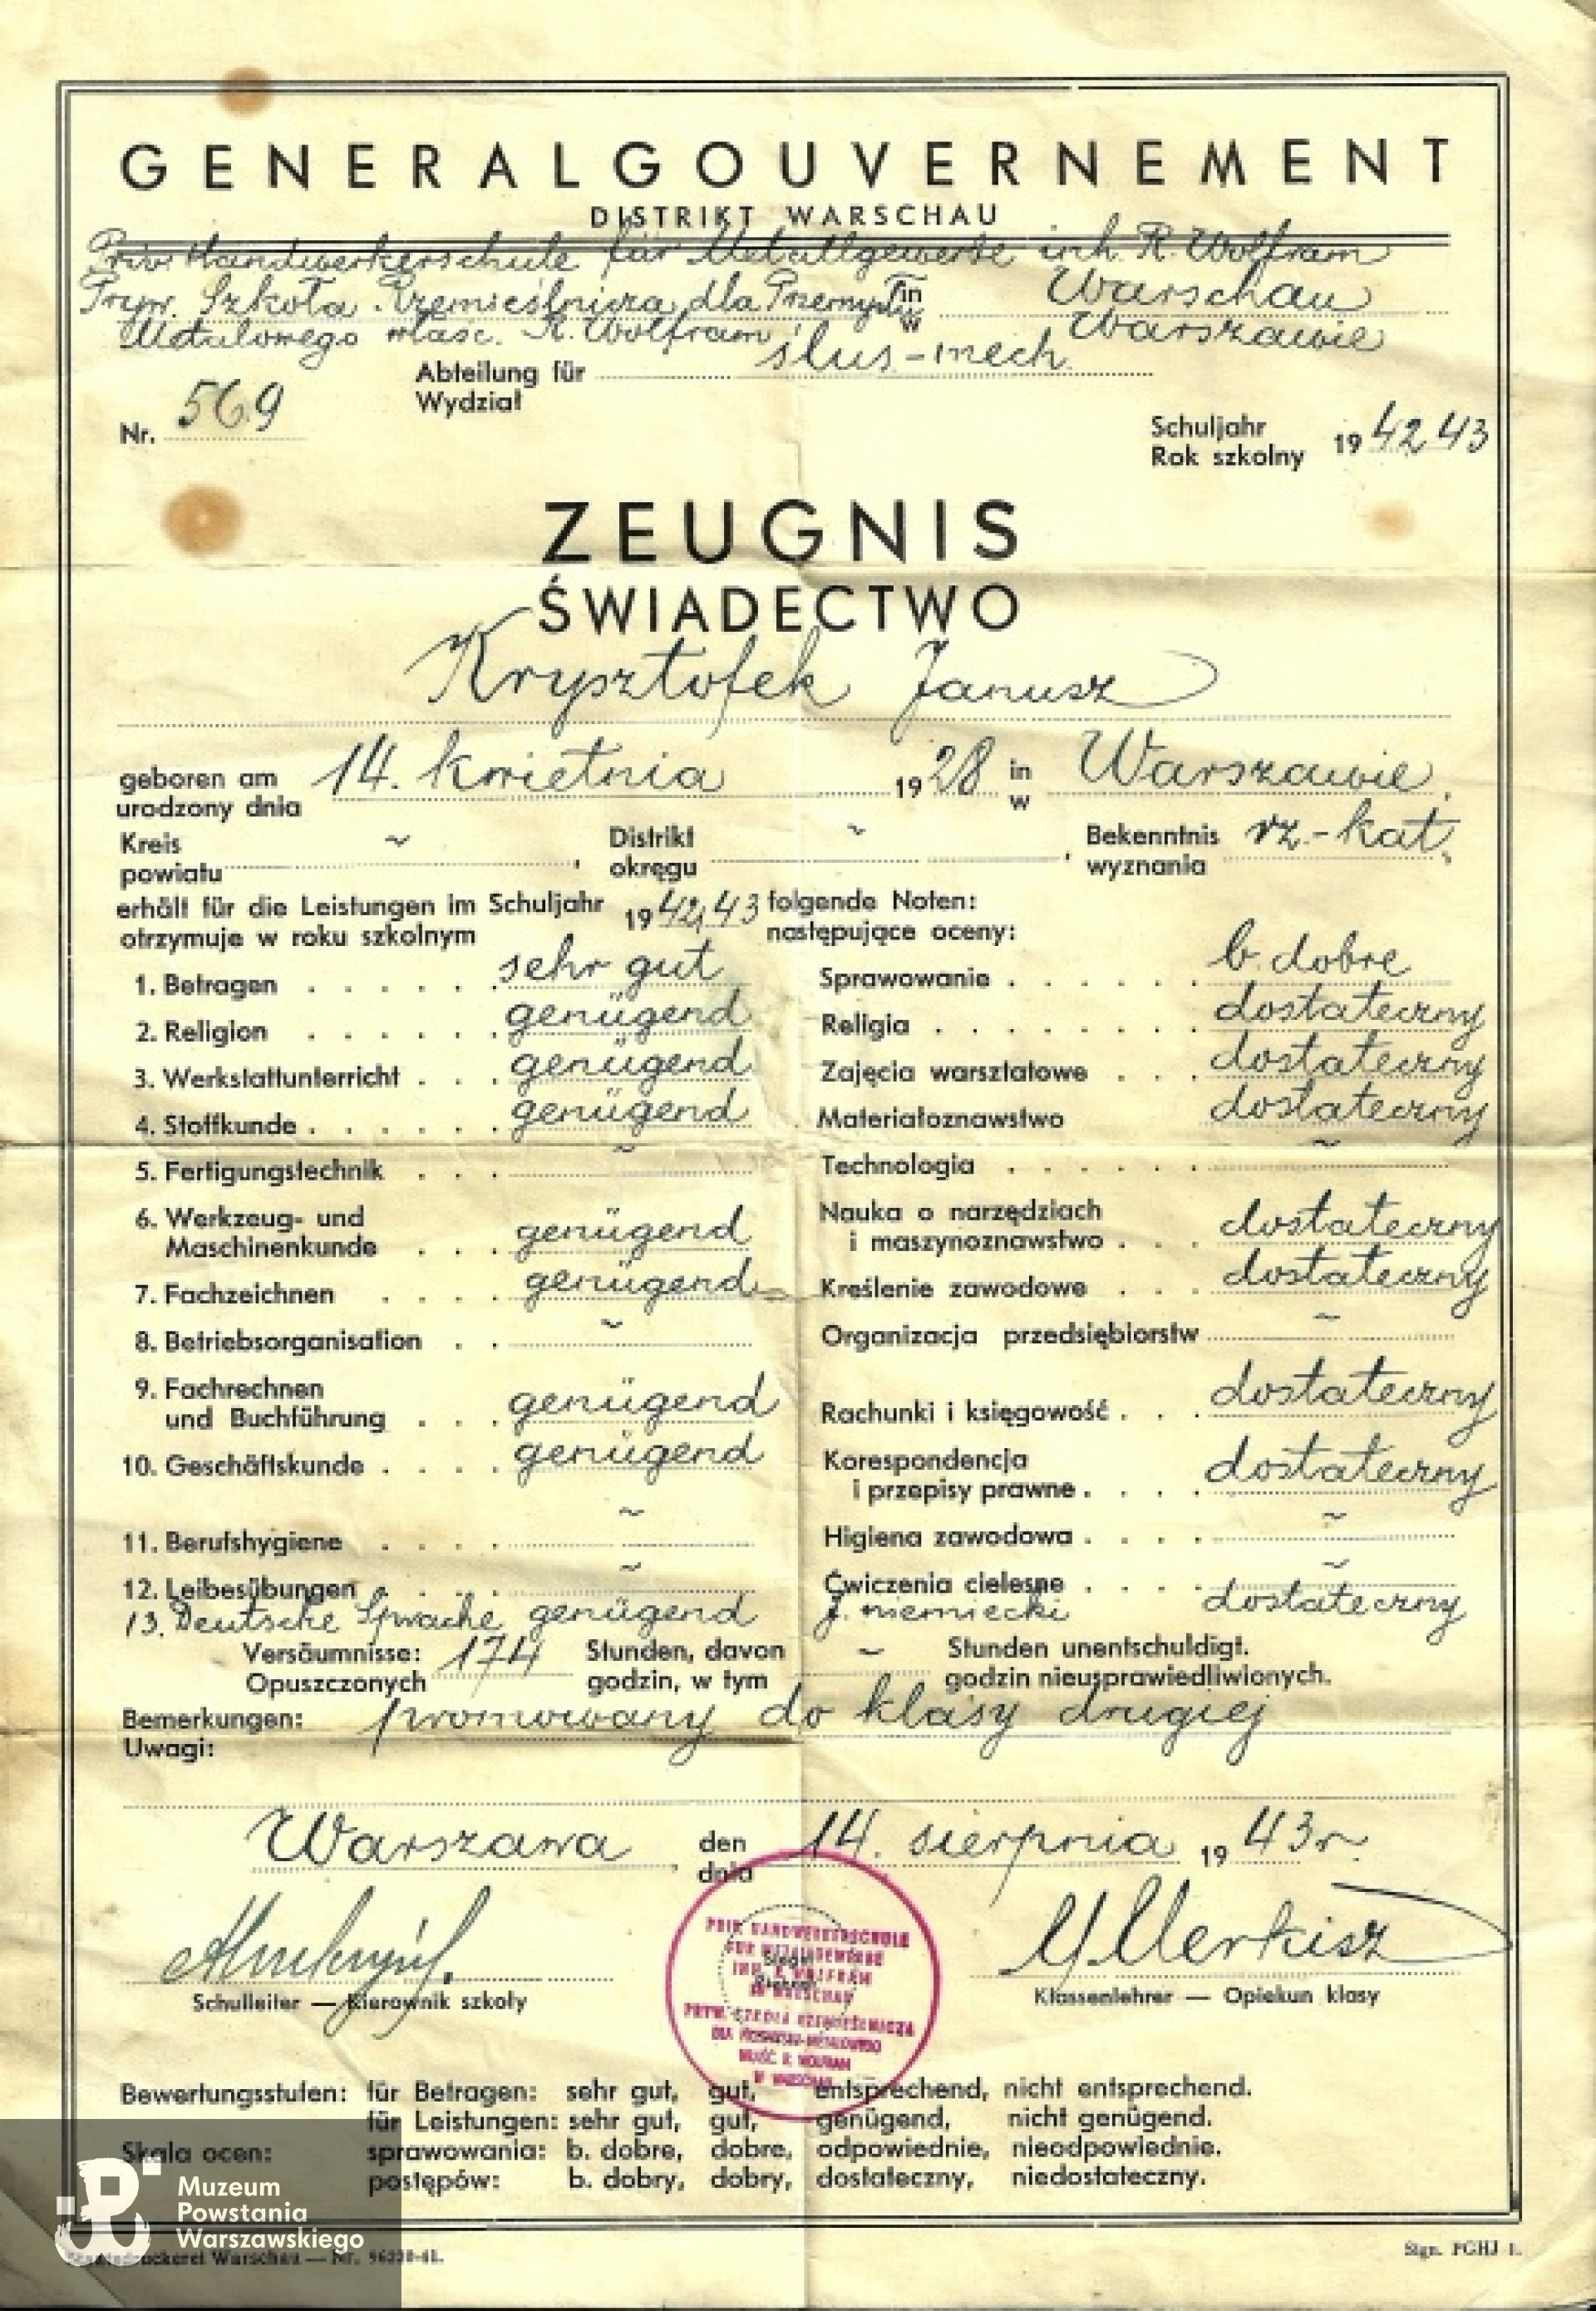 GENERALGOUVERNEMENT
DISTRIKT WARSCHAU
Priv. Handwerkerschule für Metallgewerbe inh. R. Wolfram
Pryw. Szkoła Rzemieślnicza dla Przemysł in Warschau
Metalowego własc. R. Wolfram w Warszawie
Abteilung für ślus-mech.
Wydział
Nr. 569
Schuljahr
Rok szkolny 1942 43
ZEUGNIS
ŚWIADECTWO
Krysztofek Janusz
geboren am 14. kwietnia 1928 in Warszawie,
urodzony dnia w
Kreis ~ , Distrikt ~ , Bekenntnis rz.-kat.,
powiatu okręgu wyznania
erhält für die Leistungen im Schuljahr 1942/43 folgende Noten:
otrzymuje w roku szkolnym następujące oceny:
1. Betragen sehr gut Sprawowanie b. dobre
2. Religion genügend Religia dostateczny
3. Werkstattunterricht genügend Zajęcia warsztatowe dostateczny
4. Stoffkunde genügend Materiałoznawstwo dostateczny
5. Fertigungstechnik ~ Technologia ~
6. Werkzeug- und Nauka o narzędziach
Maschinenkunde genügend i maszynoznawstwo dostateczny
7. Fachzeichnen genügend Kreślenie zawodowe dostateczny
8. Betriebsorganisation ~ Organizacja przedsiębiorstw ~
9. Fachrechnen
und Buchführung genügend Rachunki i księgowość dostateczny
10. Geschäftskunde genügend Korespondencja
i przepisy prawne dostateczny
11. Berufshygiene ~ Higiena zawodowa ~
12. Leibesübungen ~ Ćwiczenia cielesne ~
13. Deutsche Sprache genügend J. niemiecki dostateczny
Versäumnisse: 174 Stunden, davon ~ Stunden unentschuldigt.
Opuszczonych godzin, w tym godzin nieusprawiedliwionych.
Bemerkungen: promowany do klasy drugiej
Uwagi:
Warszawa, den 14. sierpnia 1943 r.
dnia
Merkisz
Schulleiter — Kierownik szkoły
Klassenlehrer — Opiekun klasy
PRIV. HANDWERKERSCHULE
FÜR METALLGEWERBE
INH. R. WOLFRAM
IN WARSCHAU
PRYW. SZKOŁA RZEMIEŚLNICZA
DLA PRZEMYSŁU METALOWEGO
WŁAŚC. R. WOLFRAM
W WARSZAWIE
Siegel
Bewertungsstufen: für Betragen: sehr gut, gut, entsprechend, nicht entsprechend.
für Leistungen: sehr gut, gut, genügend, nicht genügend.
Skala ocen: sprawowania: b. dobre, dobre, odpowiednie, nieodpowiednie.
postępów: b. dobry, dobry, dostateczny, niedostateczny.
Muzeum
Powstania
Warszawskiego
Warschau — Nr.
Sign. PGHJ 1.